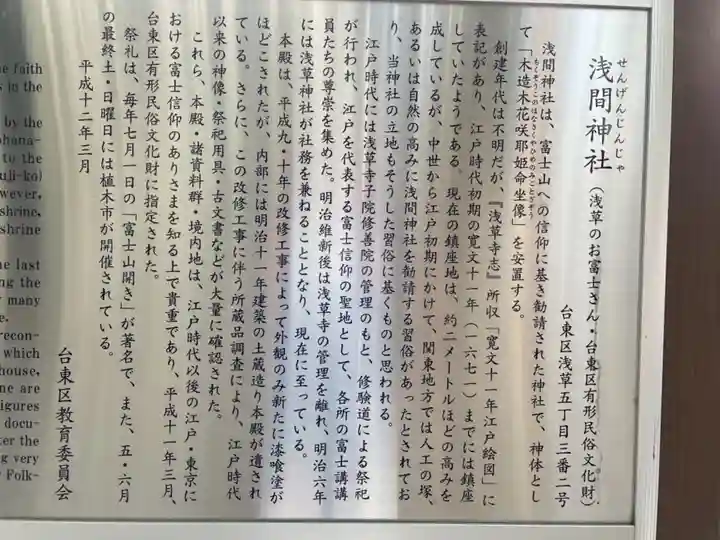 せんげんじんじゃ
浅間神社（浅草のお富士さん・台東区有形民俗文化財）
台東区浅草五丁目三番二号
浅間神社は、富士山への信仰に基き勧請された神社で、神体とし
て「木造木花咲耶姫命坐像」を安置する。
もくぞうこのはなさくやひめのみことざぞう
創建年代は不明だが、『浅草寺志』所収「寛文十一年江戸絵図」に
表記があり、江戸時代初期の寛文十一年（一六七一）までには鎮座
していたようである。現在の鎮座地は、約二メートルほどの高みを
成しているが、中世から江戸初期にかけて、関東地方では人工の塚、
あるいは自然の高みに浅間神社を勧請する習俗があったとされてお
り、当神社の立地もそうした習俗に基くものと思われる。
江戸時代には浅草寺子院修善院の管理のもと、修験道による祭祀
が行われ、江戸を代表する富士信仰の聖地として、各所の富士講講
員たちの尊崇を集めた。明治維新後は浅草寺の管理を離れ、明治六年
には浅草神社が社務を兼ねることとなり、現在に至っている。
本殿は、平成九・十年の改修工事によって外観のみ新たに漆喰塗が
ほどこされたが、内部には明治十一年建築の土蔵造り本殿が遺され
ている。さらに、この改修工事に伴う所蔵品調査により、江戸時代
以来の神像・祭祀用具・古文書などが大量に確認された。
これら、本殿・諸資料群・境内地は、江戸時代以後の江戸・東京に
おける富士信仰のありさまを知る上で貴重であり、平成十一年三月、
台東区有形民俗文化財に指定された。
祭礼は、毎年七月一日の「富士山開き」が著名で、また、五・六月
の最終土・日曜日には植木市が開催されている。
平成十二年三月
台東区教育委員会
he faith
s in the
by the
ohana-
to the
uli-ko)
wever,
shrine,
shrine
he last
ng the
many
e.
recon-
which
house,
ne are
figures
docu-
ter the
ng very
Folk-